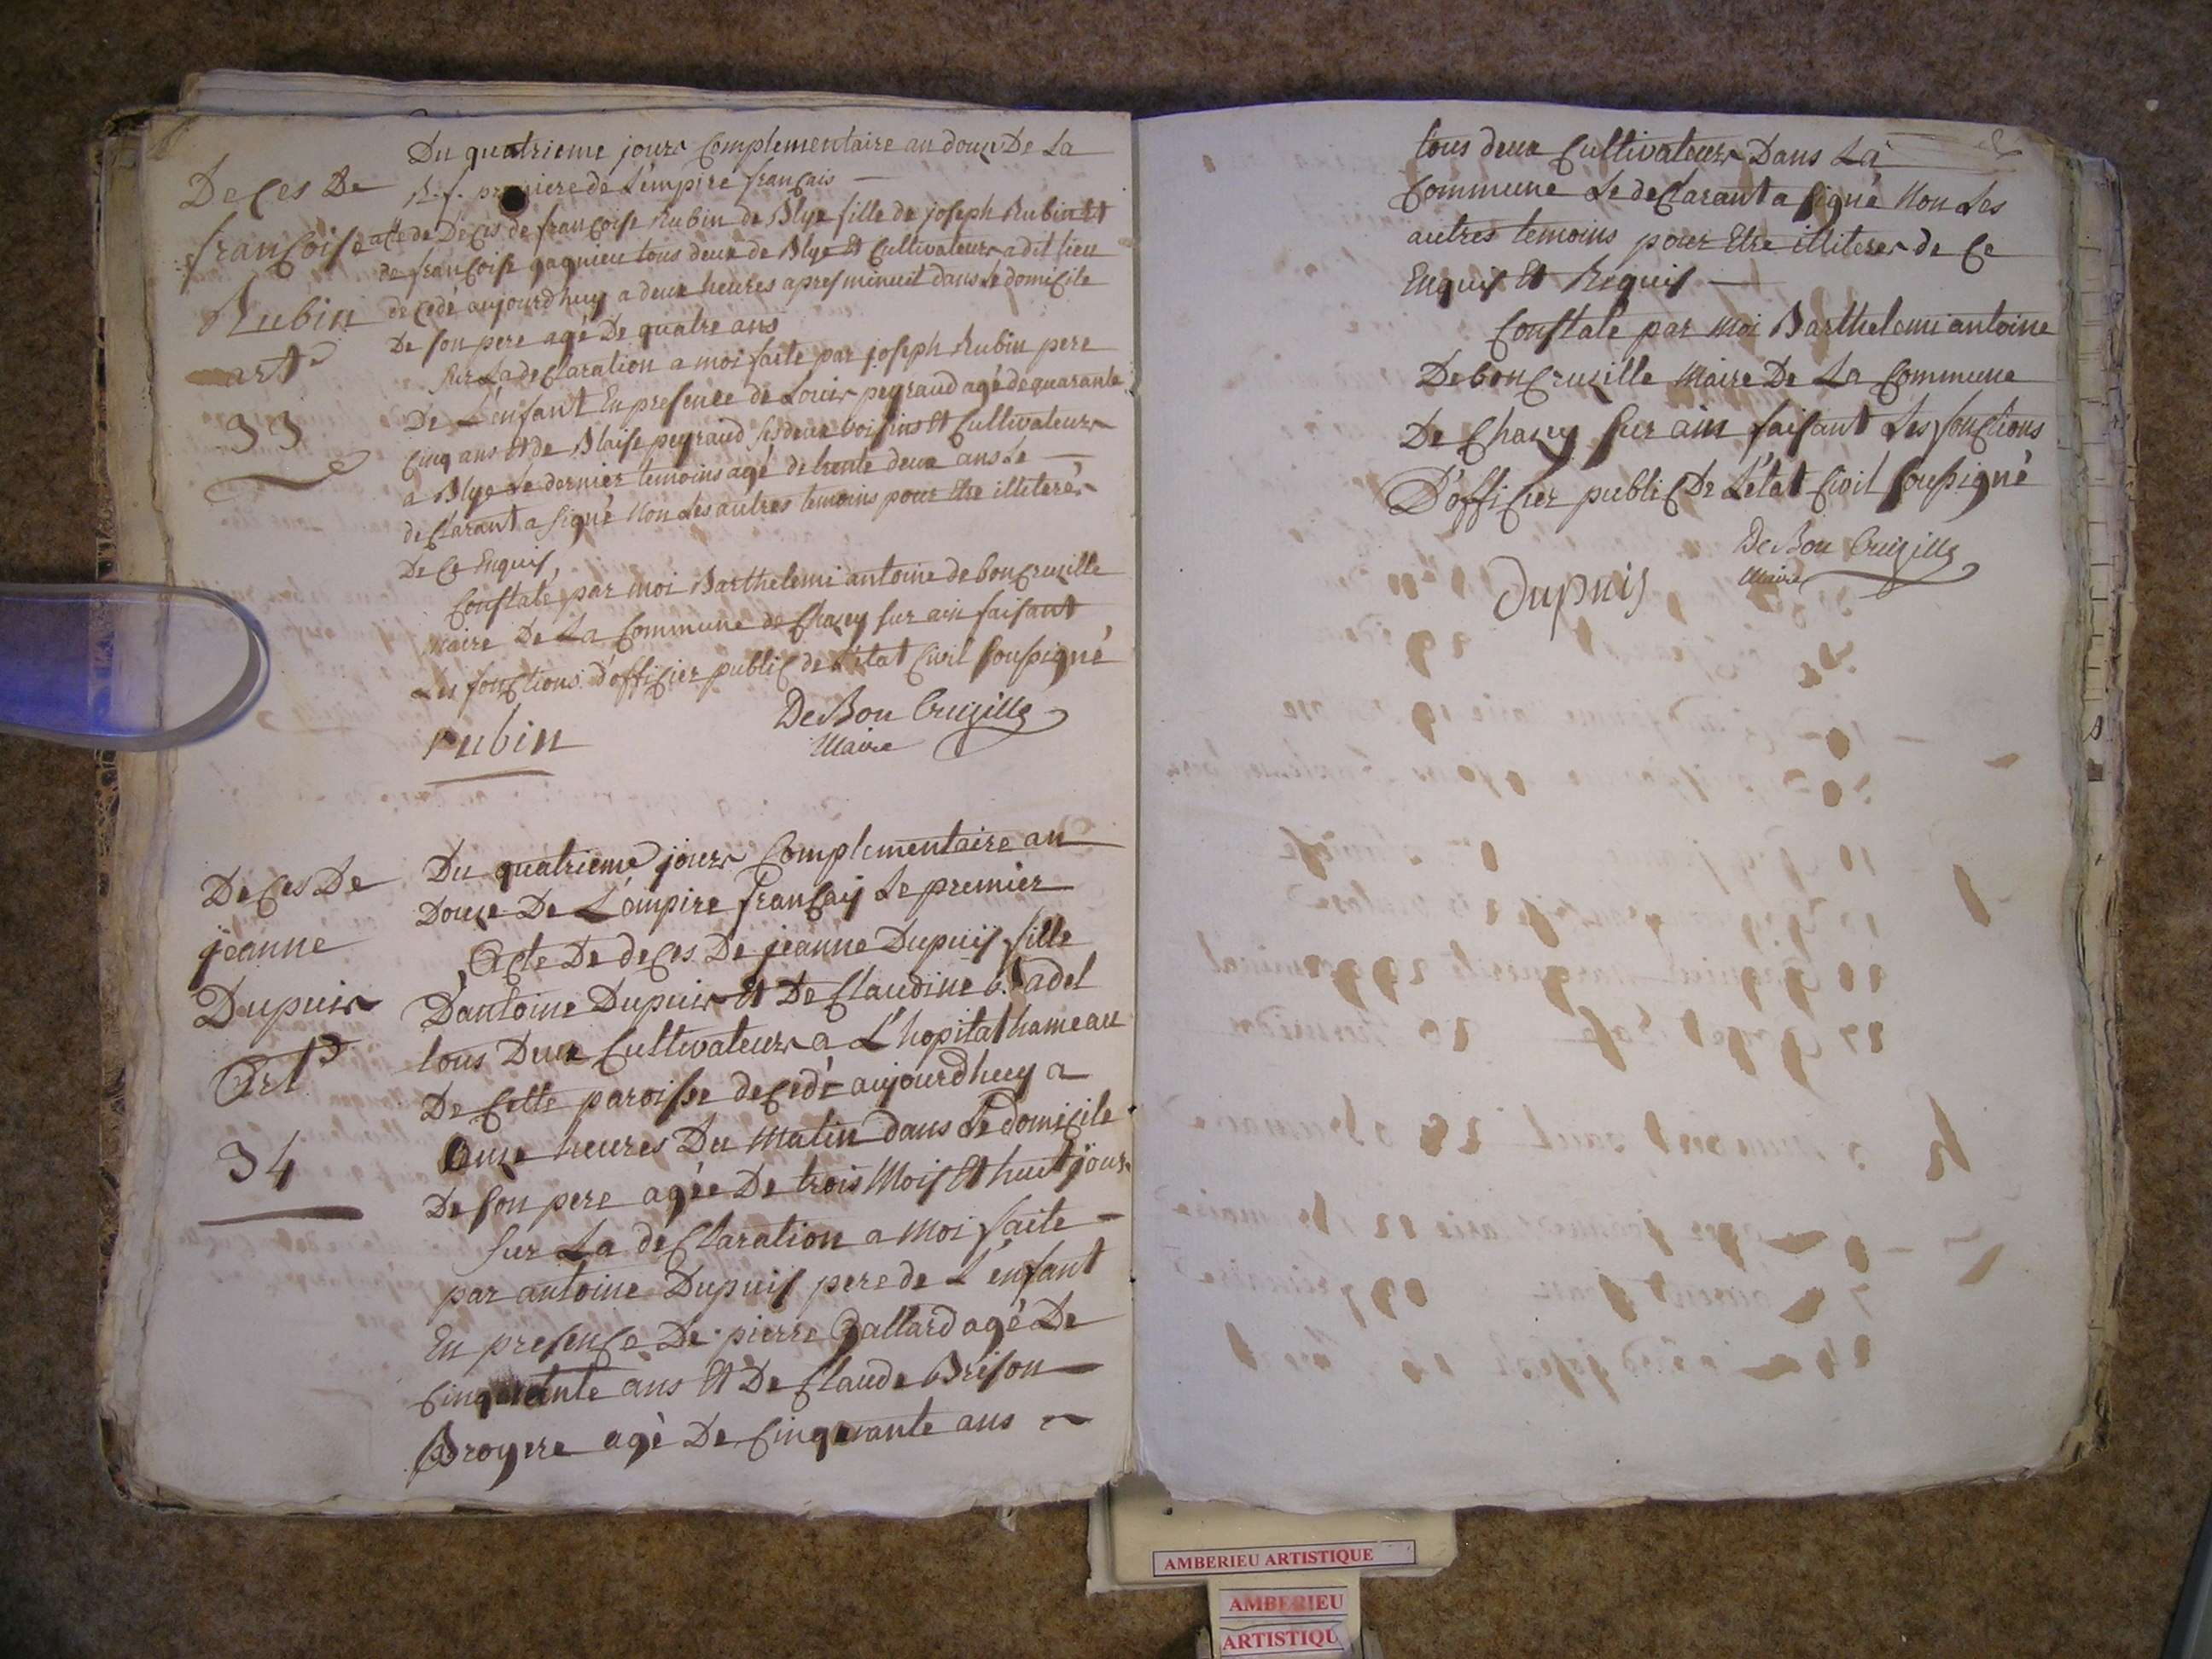 Deces De
françoise
Rubin
art.e
33
Du quatrieme jours Complementaire an douze De La
R.f. premiere de L'empire francais —
acte de Deces de françoise Rubin de Blye fille de joseph Rubin Et
de françoise gagnieu tous deux de Blye Et Cultivateurs a dit lieu
decedé aujourdhuy a deux heures apres minuit dans le domicile
De son pere agé De quatre ans
Sur La declaration a moi faite par joseph Rubin pere
De L'enfant En presence de Louis peyraud agé de quarante
Cinq ans Et de Blaise peyraud ses deux voisins Et Cultivateurs
a Blye Le dernier temoins agé de trente deux ans Le —
declarant a Signé Non Les autres temoins pour Etre illiterés
De Ce Enquis,
Constaté par moi Barthelemi antoine de boncruzille
Maire De La Commune de Chazey sur ain faisant
Les fonctions d'officier public de L'état Civil soussigné
rubin
DeBon Cruzille
Maire
Deces De
jeanne
Dupuis
Art.e
34
Du quatrieme jours Complementaire an
Douze De L'empire françaij Le premier
Acte De deces De jeanne Dupuis fille
D'antoine Dupuis Et De Claudine Badel
tous Deux Cultivateurs a L'hopital hameau
De Cette paroisse decedé aujourdhuy a
Onze heures Du Matin dans Le domicile
De son pere agée De trois Mois Et huit jours
Sur La declaration a Moi faite —
par antoine Dupuis pere de L'enfant
En presence De pierre Gallard agé De
Cinquante ans Et De Claude Brison —
Broyere agé De Cinquante ans
tous deux Cultivateurs Dans La
Commune Le declarant a signé Non Les
autres temoins pour Etre illiteres de Ce
Enquis Et Requis —
Constaté par Moi Barthelemi antoine
De boncruzille Maire De La Commune
De Chazey sur ain faisant Les fonctions
D'officier public De L'état Civil soussigné
DeBon Cruzille
Maire
Dupuis
AMBERIEU ARTISTIQUE
AMBERIEU
ARTISTIQU